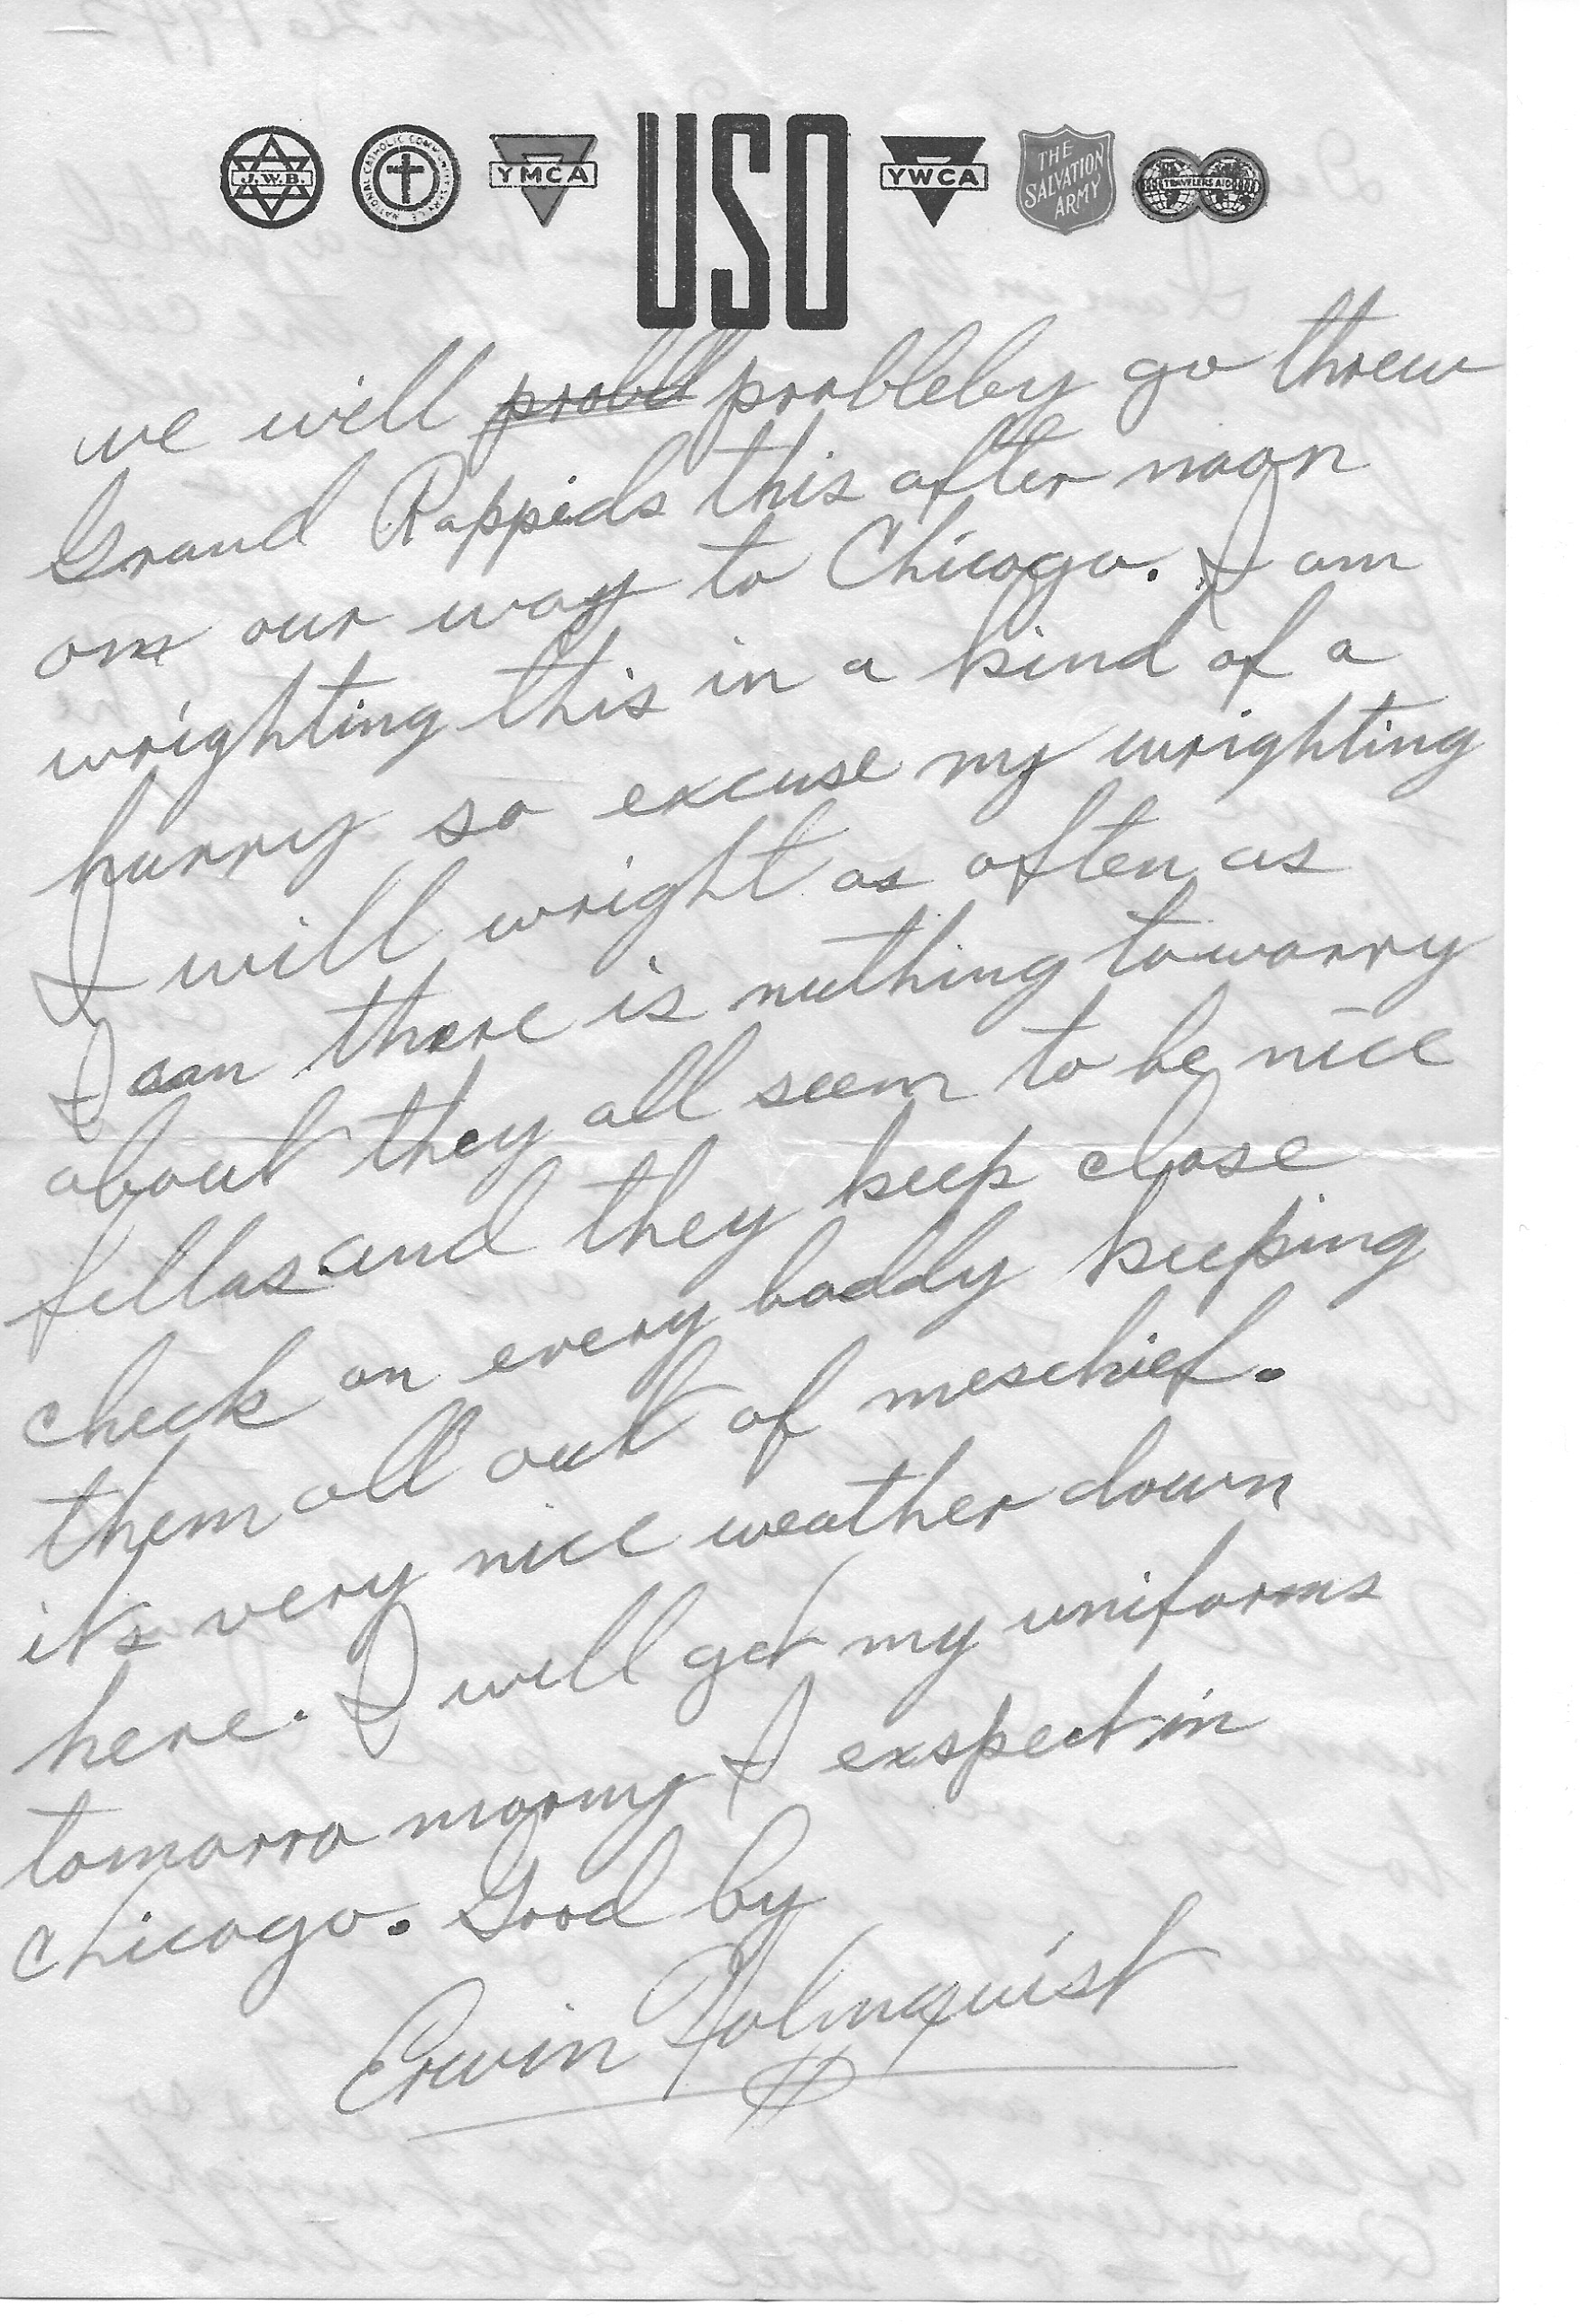 J.W.B.
NATIONAL CATHOLIC COMMUNITY SERVICE
YMCA
USO
YWCA
THE SALVATION ARMY
TRAVELERS AID
we will probl probleby go threw
Grand Rappids this after noon
on our way to Chicago. I am
wrighting this in a kind of a
hurry so excuse my wrighting
I will wright as often as
I can there is nuthing to worry
about they all seem to be nice
fellas and they keep close
check on every boddy keeping
them all out of meschief.
it's very nice weather down
here. I will get my uniforms
tomorro morny I exspect in
chicago. Good by
Erwin Holmquist